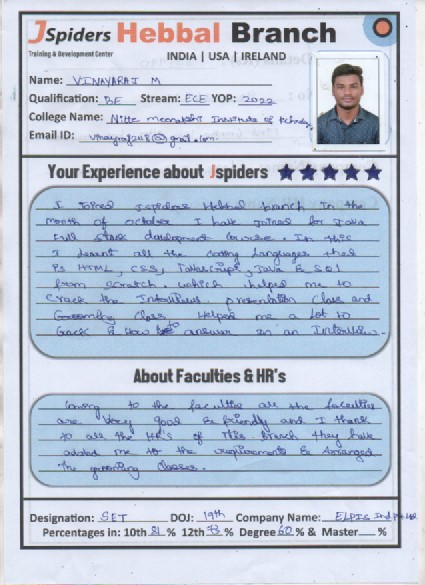 JSpiders Hebbal Branch
Training & Development Center
INDIA | USA | IRELAND
Name: VINAYARAJ M
Qualification: BE Stream: ECE YOP: 2022
College Name: Nitte Meenakshi Institute of Technology
Email ID:
Your Experience about Jspiders
I joined Jspiders Hebbal branch in the
month of october I have joined for Java
Full stack development Course. In this
I learnt all the coding languages that
is HTML, CSS, JavaScript, Java & SQL
from scratch. which helped me to
Crack the Interviews. presentation Class and
Grooming Class Helped me a lot to
Crack & How to answer in an Interview.
About Faculties & HR's
Coming to the faculties all the faculties
are very good & friendly and I thank
to all the HR's of This branch they have
added me to the requirements & arranged
the grooming classes.
Designation: SET DOJ: 19th Company Name: ELPIS
Percentages in: 10th 81 % 12th % Degree 60 % & Master %